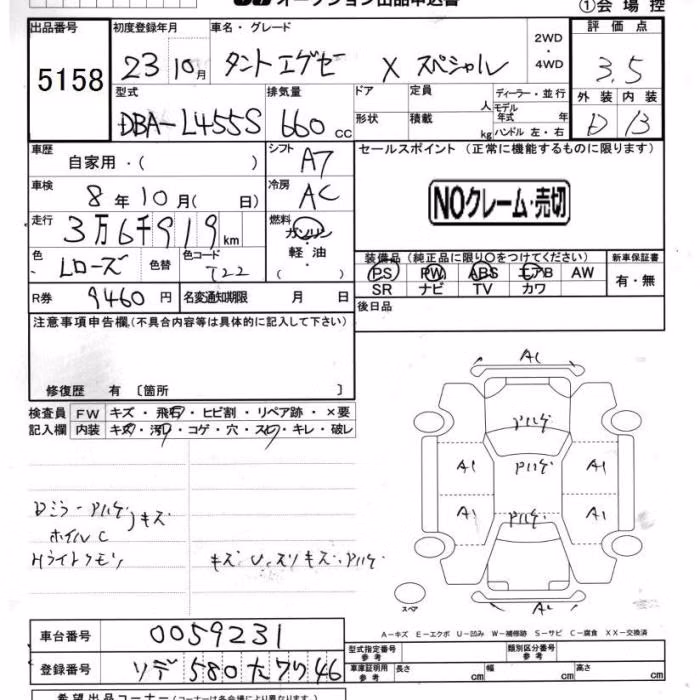 オークション出品申込書
①会場控
出品番号
5158
初度登録年月
23 10月
車名・グレード
タントエグゼ X スペシャル
2WD
・
4WD
評価点
3.5
外装 内装
D B
型式
DBA-L455S
排気量
660 cc
ドア
定員 人
形状
積載 kg
ディーラー・並行
モデル年式 年
ハンドル 左・右
車歴
自家用・( )
シフト
A7
セールスポイント (正常に機能するものに限ります)
NOクレーム・売切
車検
8年10月( 日)
冷房
AC
走行
3万6千919km
燃料
ガソリン
軽・油
( )
色
Lローズ
色替
色コード
T22
装備品 (純正品に限り○をつけてください)
PS PW ABS エアB AW
SR ナビ TV カワ
新車保証書
有・無
R券 9460円
名変通知期限 月 日
後日品
注意事項申告欄(不具合内容等は具体的に記入して下さい)
修復歴 有 〔箇所 〕
検査員
記入欄
FW キズ・飛石・ヒビ割・リペア跡・×要
内装 キズ・汚れ・コゲ・穴・スレ・キレ・破レ
Dミラーアハゲ,キズ
ホイルC
Hライトクモリ
キズ、U、スリキズ、アハゲ
A1
アハゲ
A1 アハゲ A1
A1 アハゲ A1
A2
スペア
A-キズ E-エクボ U-凹み W-補修跡 S-サビ C-腐食 XX-交換済
車台番号
0059231
登録番号
ソデ580た7746
型式指定番号
参考
類別区分番号
参考
車庫証明用
参考
長さ cm
幅 cm
高さ cm
希望出品コーナー(コーナーは各会場により異なります)